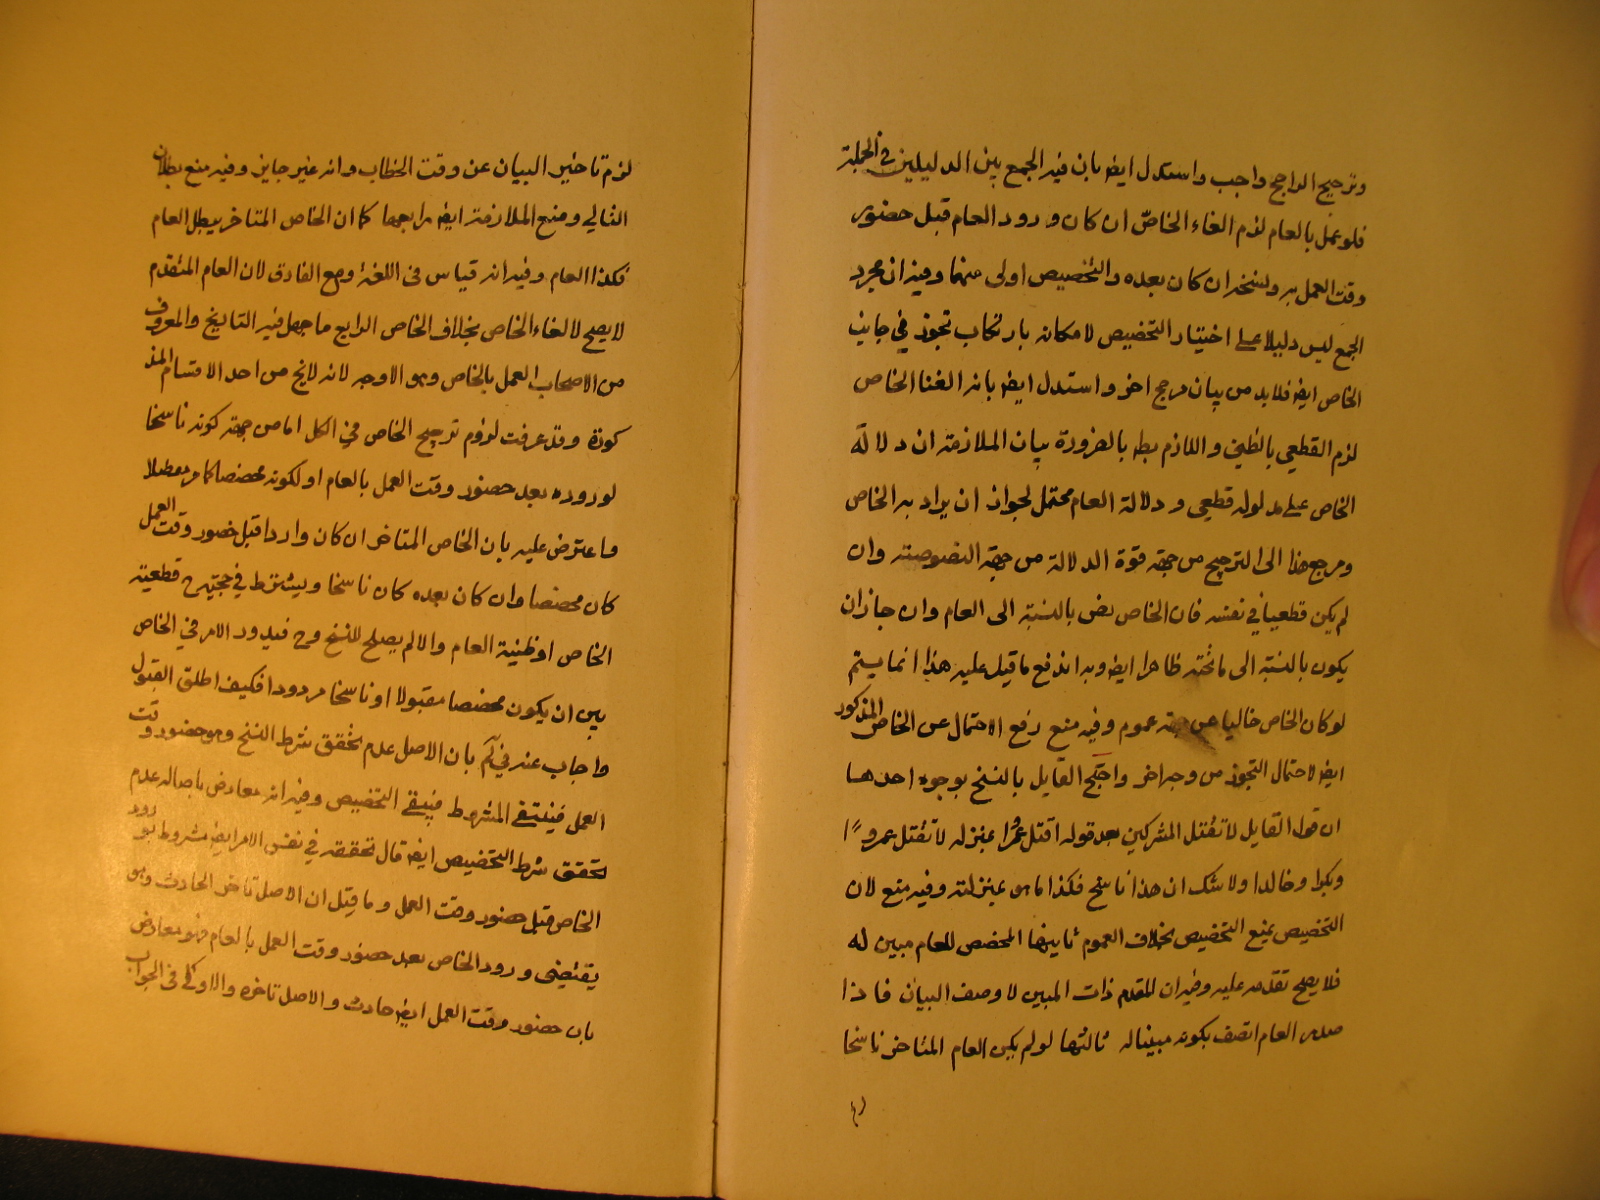 وترجيح الراجح واجب واستدل ايض بان فيه الجمع بين الدليلين في الجملة
فلو عمل بالعام لزم الغاء الخاصّ ان كان ورود العام قبل حضور
وقت العمل به ونسخه ان كان بعده والتخصيص اولى منهما وفيه ان مجرد
الجمع ليس دليلا على اختيار التخصيص لامكانه بارتكاب تجوز في جانب
الخاص ايض فلابد من بيان مرجح اخر واستدل ايض بانه الغنا الخاص
لزم القطعي بالظني واللازم بط بالضرورة بيان الملازمة ان دلالة
الخاص على مدلوله قطعي ودلالة العام محتمل لجواز ان يراد به الخاص
ومرجع هذا الى الترجيح من جهة قوة الدلالة من جهة النصوصية وان
لم يكن قطعيا في نفسه فان الخاص نص بالنسبة الى العام وان جاز ان
يكون بالنسبة الى ما تحته ظاهرا ايض وبه اندفع ما قيل عليه هذا انما يستم
لو كان الخاص خاليا من جهة عموم وفيه منع رفع الاحتمال عن الخاص المذكور
ايض لاحتمال التجوز من وجه اخر واحتج القايل بالنسخ بوجوه احدها
ان قول القايل لا تقتل المشركين بعد قوله اقتل عمرا بمنزله لا تقتل عمروًا
وبكرا وخالدا ولا شك ان هذا ناسخ فكذا ما هو بمنزلته وفيه منع لان
التخصيص يمنع التخصيص بخلاف العموم ثانيها المخصص للعام مبين له
فلا يصح تقدمه عليه وفيه ان المقدم ذات المبين لا وصف البيان فاذا
صدر العام اتصف بكونه مبينا له ثالثها لو لم يكن العام المتاخر ناسخا
لزم تاخير البيان عن وقت الخطاب وانه غير جايز وفيه منع بطلان
التالي ومنع الملازمة ايض رابعها كما ان الخاص المتاخر يبطل العام
فكذا العام وفيه انه قياس في اللغة ومع الفارق لان العام المتقدم
لا يصح لالغاء الخاص بخلاف الخاص الرابع ما جهل فيه التاريخ والمعروف
من الاصحاب العمل بالخاص وهو الاوجه لانه لا يخ من احد الاقسام المذ
كورة وقد عرفت لزوم ترجيح الخاص في الكل اما من جهة كونه ناسخا
لوروده بعد حضور وقت العمل بالعام او لكونه مخصصا كما مر مفصلا
وما عترض عليه بان الخاص المتاخر ان كان واردا قبل حضور وقت العمل
كان مخصصا وان كان بعده كان ناسخا ويشترط في حجتيه ح قطعية
الخاص او ظنية العام والا لم يصلح للنسخ وح فيدور الامر في الخاص
بين ان يكون مخصصا مقبولا او ناسخا مردودا فكيف اطلق القبول
واجاب عنه في لم بان الاصل عدم تحقق شرط النسخ وهو حضور وقت
العمل فينتفي المشروط فيبقى التخصيص وفيه انه معارض باصاله عدم
تحقق شرط التخصيص ايض قال تحققه في نفس الامر ايض مشروط بورود
الخاص قبل حضور وقت العمل وما قيل ان الاصل تاخر الحادث وهو
يقتضي ورود الخاص بعد حضور وقت العمل بالعام فهو معارض
بان حضور وقت العمل ايض حادث والاصل تاخره والاولى في الجواب